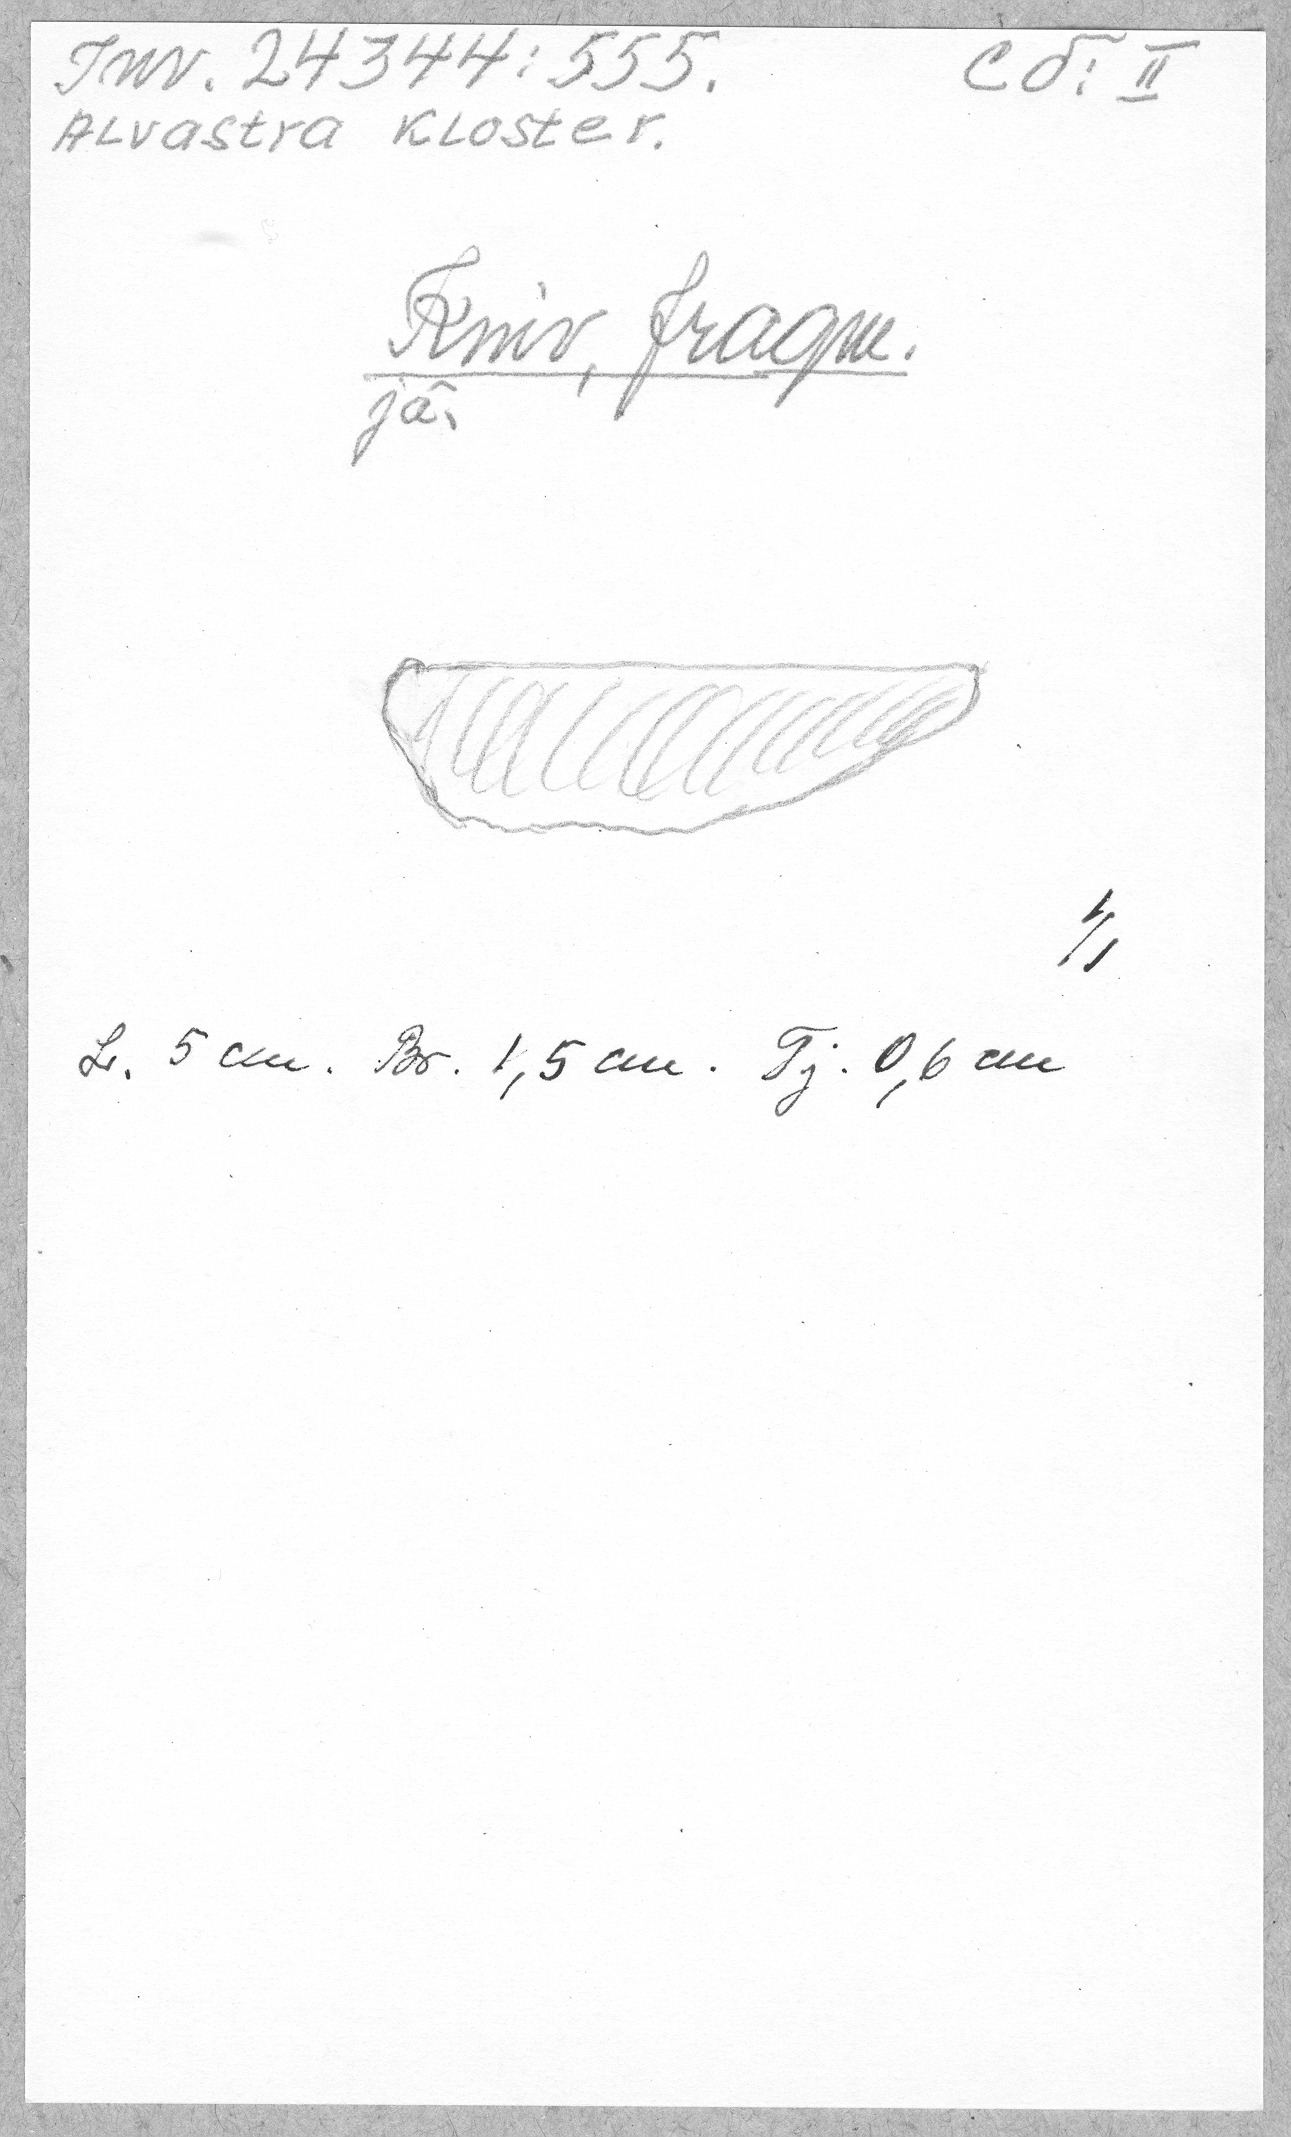 Inv. 24344:555. Cδ: II
ALvastra KLoster.
Kniv, fragm.
jä.
1/1
L. 5 cm. Br. 1,5 cm. Tj. 0,6 cm